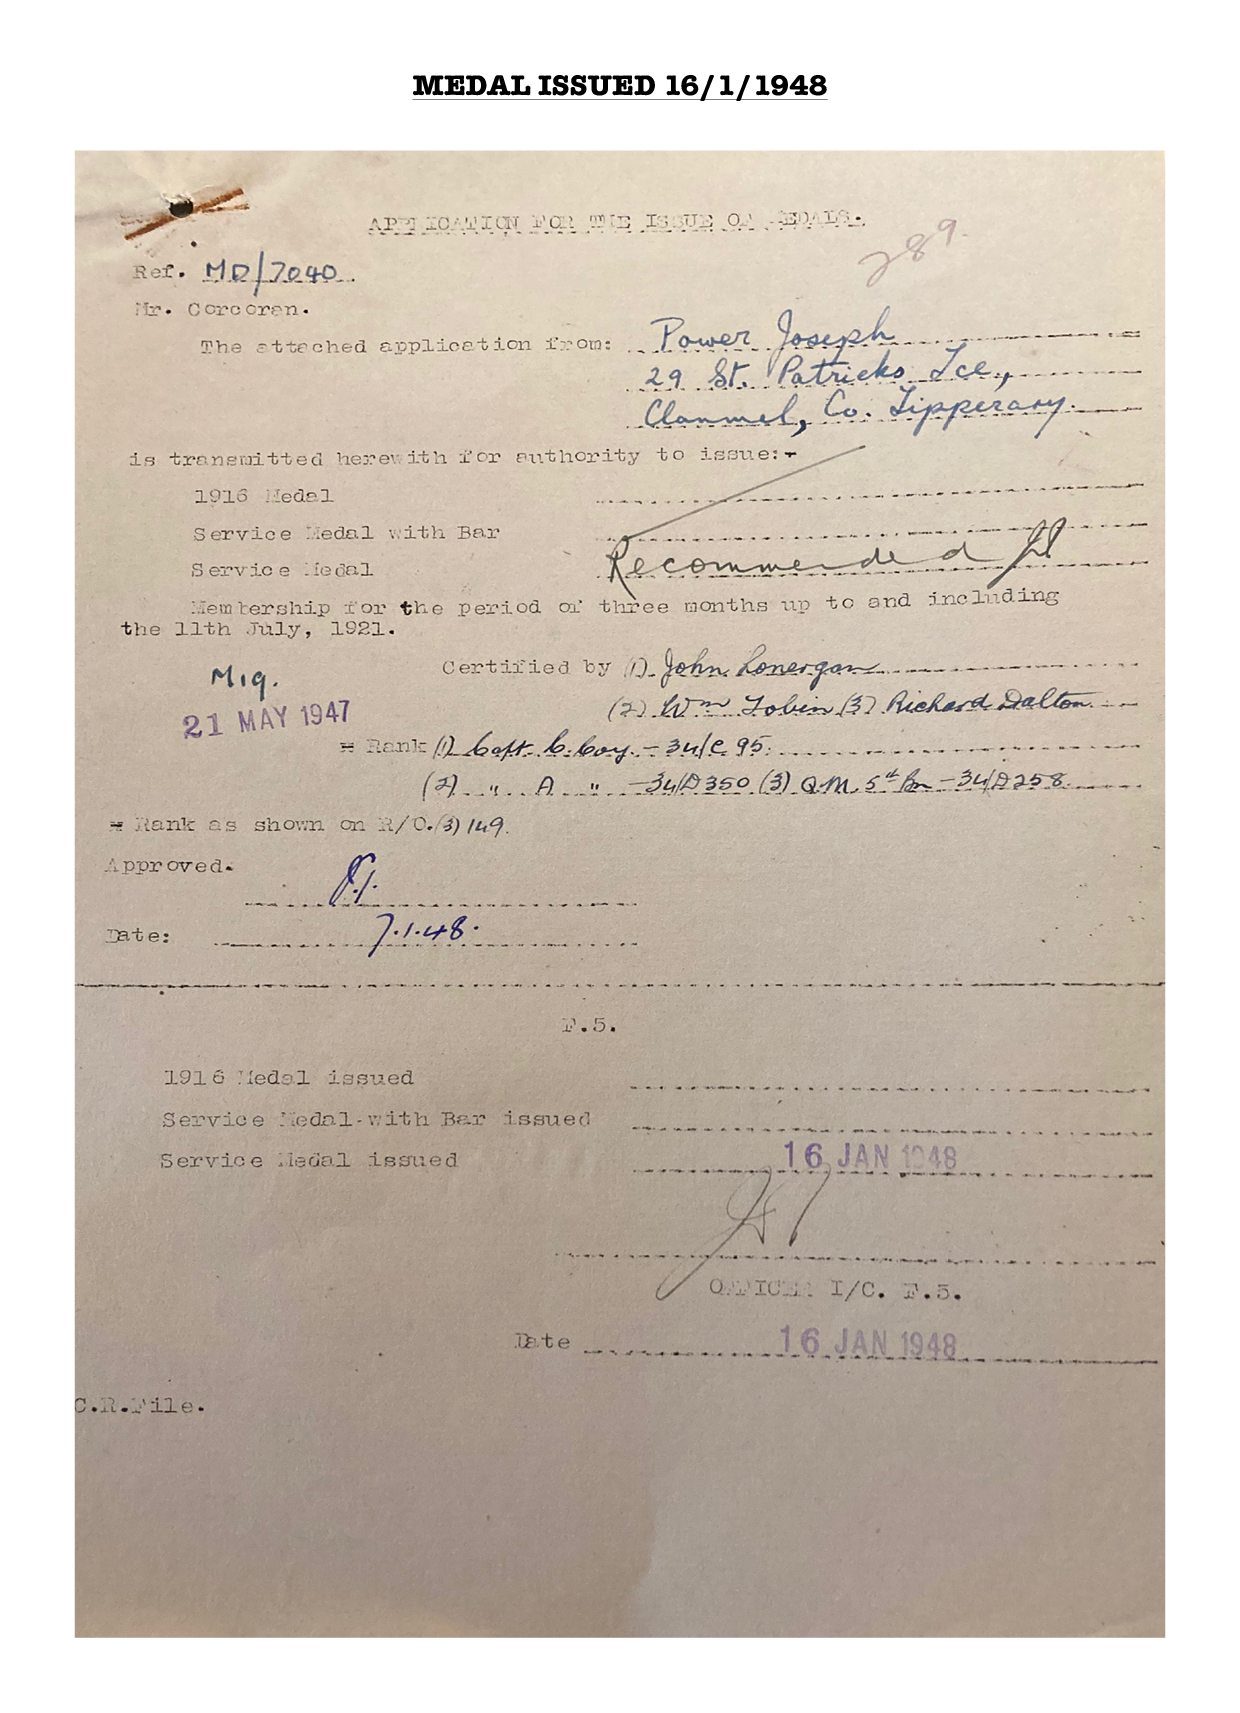 MEDAL ISSUED 16/1/1948
APPLICATION FOR THE ISSUE OF MEDALS.
289.
Ref. MD/7040
Mr. Corcoran.
The attached application from: Power Joseph
29 St. Patricks Tce,
Clonmel, Co. Tipperary.
is transmitted herewith for authority to issue:-
1916 Medal
Service Medal with Bar
Service Medal Recommended
Membership for the period of three months up to and including
the 11th July, 1921.
Certified by (1). John Lonergan
M19.
(2) Wm Tobin (3) Richard Dalton
21 MAY 1947
= Rank (1) Capt C. Coy. - 34/C 95.
(2) " A " - 34/D350 (3) Q.M. 5th Bn - 34/D258.
= Rank as shown on R/O.(3) 149.
Approved.
Date: 7.1.48.
F.5.
1916 Medal issued
Service Medal-with Bar issued
Service Medal issued 16 JAN 1948
OFFICER I/C. F.5.
Date 16 JAN 1948
C.R.File.